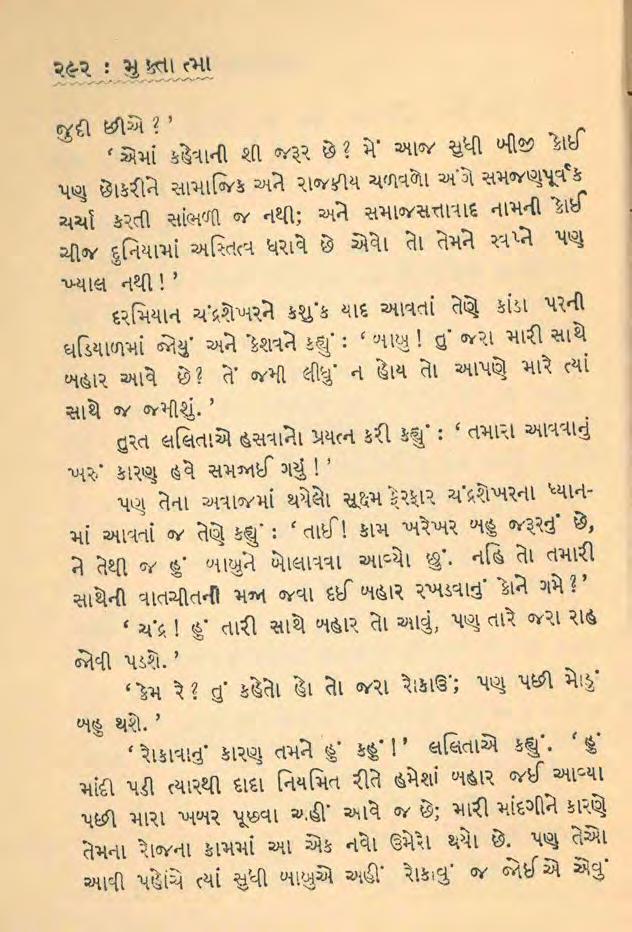 ૨૯૨ : મુક્તાત્મા
જુદી છીએ ?'
'એમાં કહેવાની શી જરૂર છે ? મેં આજ સુધી બીજી કોઈ
પણ છોકરીને સામાજિક અને રાજકીય ચળવળો અંગે સમજણપૂર્વક
ચર્ચા કરતી સાંભળી જ નથી; અને સમાજસત્તાવાદ નામની કોઈ
ચીજ દુનિયામાં અસ્તિત્વ ધરાવે છે એવો તો તેમને સ્વપ્ને પણ
ખ્યાલ નથી !'
દરમિયાન ચંદ્રશેખરને કશુંક યાદ આવતાં તેણે કાંડા પરની
ઘડિયાળમાં જોયું અને કેશવને કહ્યું : 'બાબુ ! તું જરા મારી સાથે
બહાર આવે છે ? તેં જમી લીધું ન હોય તો આપણે મારે ત્યાં
સાથે જ જમીશું.'
તુરત લલિતાએ હસવાનો પ્રયત્ન કરી કહ્યું : 'તમારા આવવાનું
ખરું કારણ હવે સમજાઈ ગયું !'
પણ તેના અવાજમાં થયેલો સૂક્ષ્મ ફેરફાર ચંદ્રશેખરના ધ્યાન-
માં આવતાં જ તેણે કહ્યું : 'તાઈ ! કામ ખરેખર બહુ જરૂરનું છે,
ને તેથી જ હું બાબુને બોલાવવા આવ્યો છું. નહિ તો તમારી
સાથેની વાતચીતની મજા જવા દઈ બહાર રખડવાનું કોને ગમે ?'
'ચંદ્ર ! હું તારી સાથે બહાર તો આવું, પણ તારે જરા રાહ
જોવી પડશે.'
'કેમ રે ? તું કહેતો હો તો જરા રોકાઉં; પણ પછી મોડું
બહુ થશે.'
'રોકાવાનું કારણ તમને હું કહું !' લલિતાએ કહ્યું. 'હું
માંદી પડી ત્યારથી દાદા નિયમિત રીતે હમેશાં બહાર જઈ આવ્યા
પછી મારા ખબર પૂછવા અહીં આવે જ છે; મારી માંદગીને કારણે
તેમના રોજના કામમાં આ એક નવો ઉમેરો થયો છે. પણ તેઓ
આવી પહોંચે ત્યાં સુધી બાબુએ અહીં રોકાવું જ જોઈએ એવું